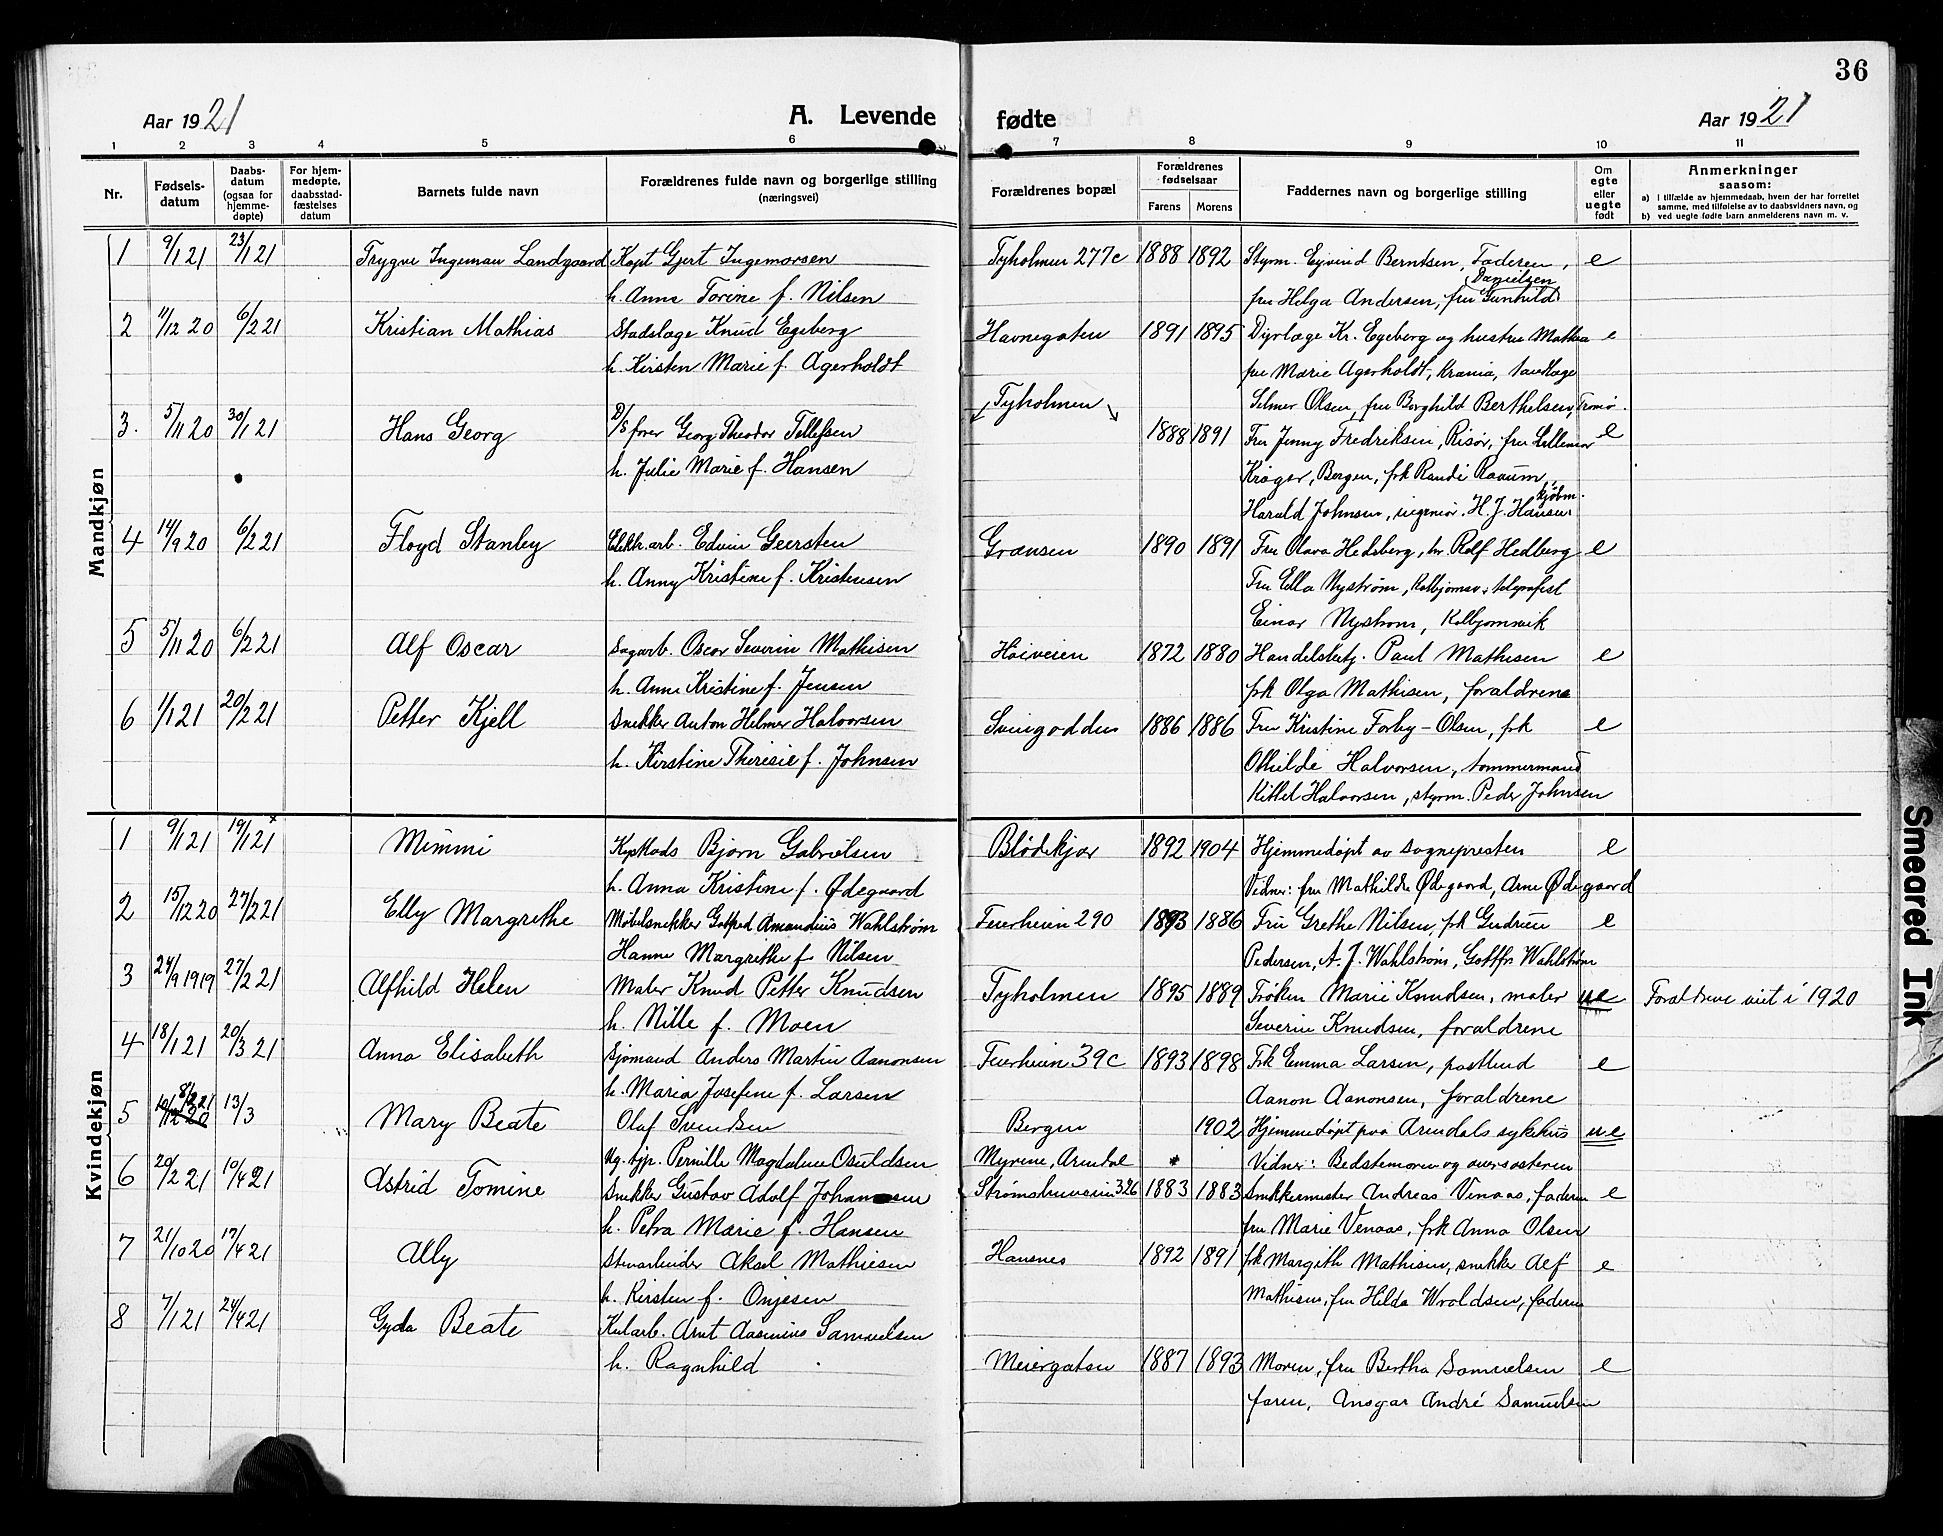 36
Aar 1921 A. Levende fødte Aar 1921
1 2 3 4 5 6 7 8 9 10 11
Nr. Fødselsdatum Daabsdatum (ogsaa for hjemmedøpte) For hjemmedøpte, daabsstadfæstelses datum Barnets fulde navn Forældrenes fulde navn og borgerlige stilling (næringsvei) Forældrenes bopæl Forældrenes fødselsaar Farens Morens Faddernes navn og borgerlige stilling Om egte eller uegte født Anmerkninger saasom:
a) I tilfælde av hjemmedaab, hvem der har forrettet samme, med tilføielse av to daabsvidners navn, og
b) ved uegte fødte barn anmelderens navn m. v.
Mandkjøn
1 9/1 21 23/1 21 Trygve Ingeman Landgaard Kapt Gjert Ingemarsen Tyholmen 277c 1888 1892 Styrm. Eyvind Berntsen, Faderen, e
h. Anna Torine f. Nilsen fru Helga Andersen, fru Gunhild Danielsen
2 11/12 20 6/2 21 Kristian Mathias Stadslæge Knud Egeberg Havnegaten 1891 1895 Dyrlæge Kr. Egeberg og hustru Mathea e
h. Kirsten Marie f. Agerholdt fru Marie Agerholdt, Krania, tandlæge
Tyholmen Selmer Olsen, fru Borghild Berthelsen, Tromø.
3. 5/11 20 30/1 21 Hans Georg D/S fører Georg Theodor Tellefsen 1888 1891 Fru Jenny Fredriksen, Risør, fru Lillemor e
h. Julie Marie f. Hansen Krøger, Bergen, frk Randi Ravum,
Harald Johnsen, ingeniør. H. J. Hansen kjøbm.
4 14/9 20 6/2 21 Floyd Stanley Elektr.arb. Edvin Geersten Grænsen 1890 1891 Fru Olava Hedberg, hr. Rolf Hedberg e
h. Anny Kristine f. Kristensen Fru Ella Nystrøm, Kolbjørnsv. telegrafist
Einar Nystrøm, Kolbjørnsvik
5 5/11 20 6/2 21 Alf Oscar Sagarb. Oscar Severin Mathisen Høiveien 1872 1880 Handelsbetj. Paul Mathisen e
h. Anne Kristine f. Jensen frk Olga Mathisen, forældrene
6 1/1 21 20/2 21 Petter Kjell Snekker Anton Helmer Halvorsen Svingodden 1886 1886 Fru Kristine Forby-Olsen, frk e
h. Kirstine Theresie f. Johnsen Othilde Halvorsen, tømmermand
Kittel Halvorsen, styrm. Peder Johnsen
Kvindekjøn
1 9/1 21 19/1 21 x Mimmi Bjørn Gabrielsen Blødekjær 1892 1904 Hjemmedøpt av sognepresten e
h. Anna Kristine f. Ødegaard Vidner: fru Mathilde Ødegaard, Arne Ødegaard
2 15/12 20 27/2 21 Elly Margrethe Møbelsnekker Gotfred Amandius Wahlstrøm Feierheien 290 1893 1886 Fru Grethe Nilsen, frk Gudrun e
Hanne Margrethe f. Nilsen Pedersen, A. J. Wahlstrøm, Gottfr. Wahlstrøm
3 24/9 1919 27/2 21 Alfhild Helen Maler Knud Petter Knudsen Tyholmen 1895 1889 Frøken Marie Knudsen, maler ue Forældrene viet i 1920
h. Nille f. Moen Severin Knudsen, forældrene
4 18/1 21 20/3 21 Anna Elisabeth Sjømand Anders Martin Aanonsen Feierheien 39c 1893 1898 Frk Emma Larsen, postbud e
h. Maria Josefine f. Larsen Aanon Aanonsen, forældrene
5 8/2 21 13/3 Mary Beate Olaf Svendsen Bergen 1902 Hjemmedøpt paa Arendals sykehus ue
Ug. tjp. Pernille Magdalene Osuldsen Myrene, Arendal Vidner: Bedstemoren og oversøsteren
6 20/2 21 10/4 21 Astrid Tomine Snekker Gustav Adolf Johansen Strømsbuveien 326 1883 1883 Snekkermester Andreas Venaas, faderen e
h. Petra Marie f. Hansen fru Marie Venaas, frk Anna Olsen
7 21/10 20 17/4 21 Ally Stenarbeider Aksel Mathiesen Hansnes 1892 1891 frk Margith Mathisen, snekker Alf e
h. Kirsten f. Onjesen Mathisen, fru Hilda Wroldsen, faderen
8 7/1 21 24/4 21 Gyda Beate Kularb. Arnt Aasmines Samuelsen
h. Ragnhild Meiergaten 1887 1893 Moren, fru Bertha Samuelsen e
faren, Ansgar André Samuelsen
Smeared Ink